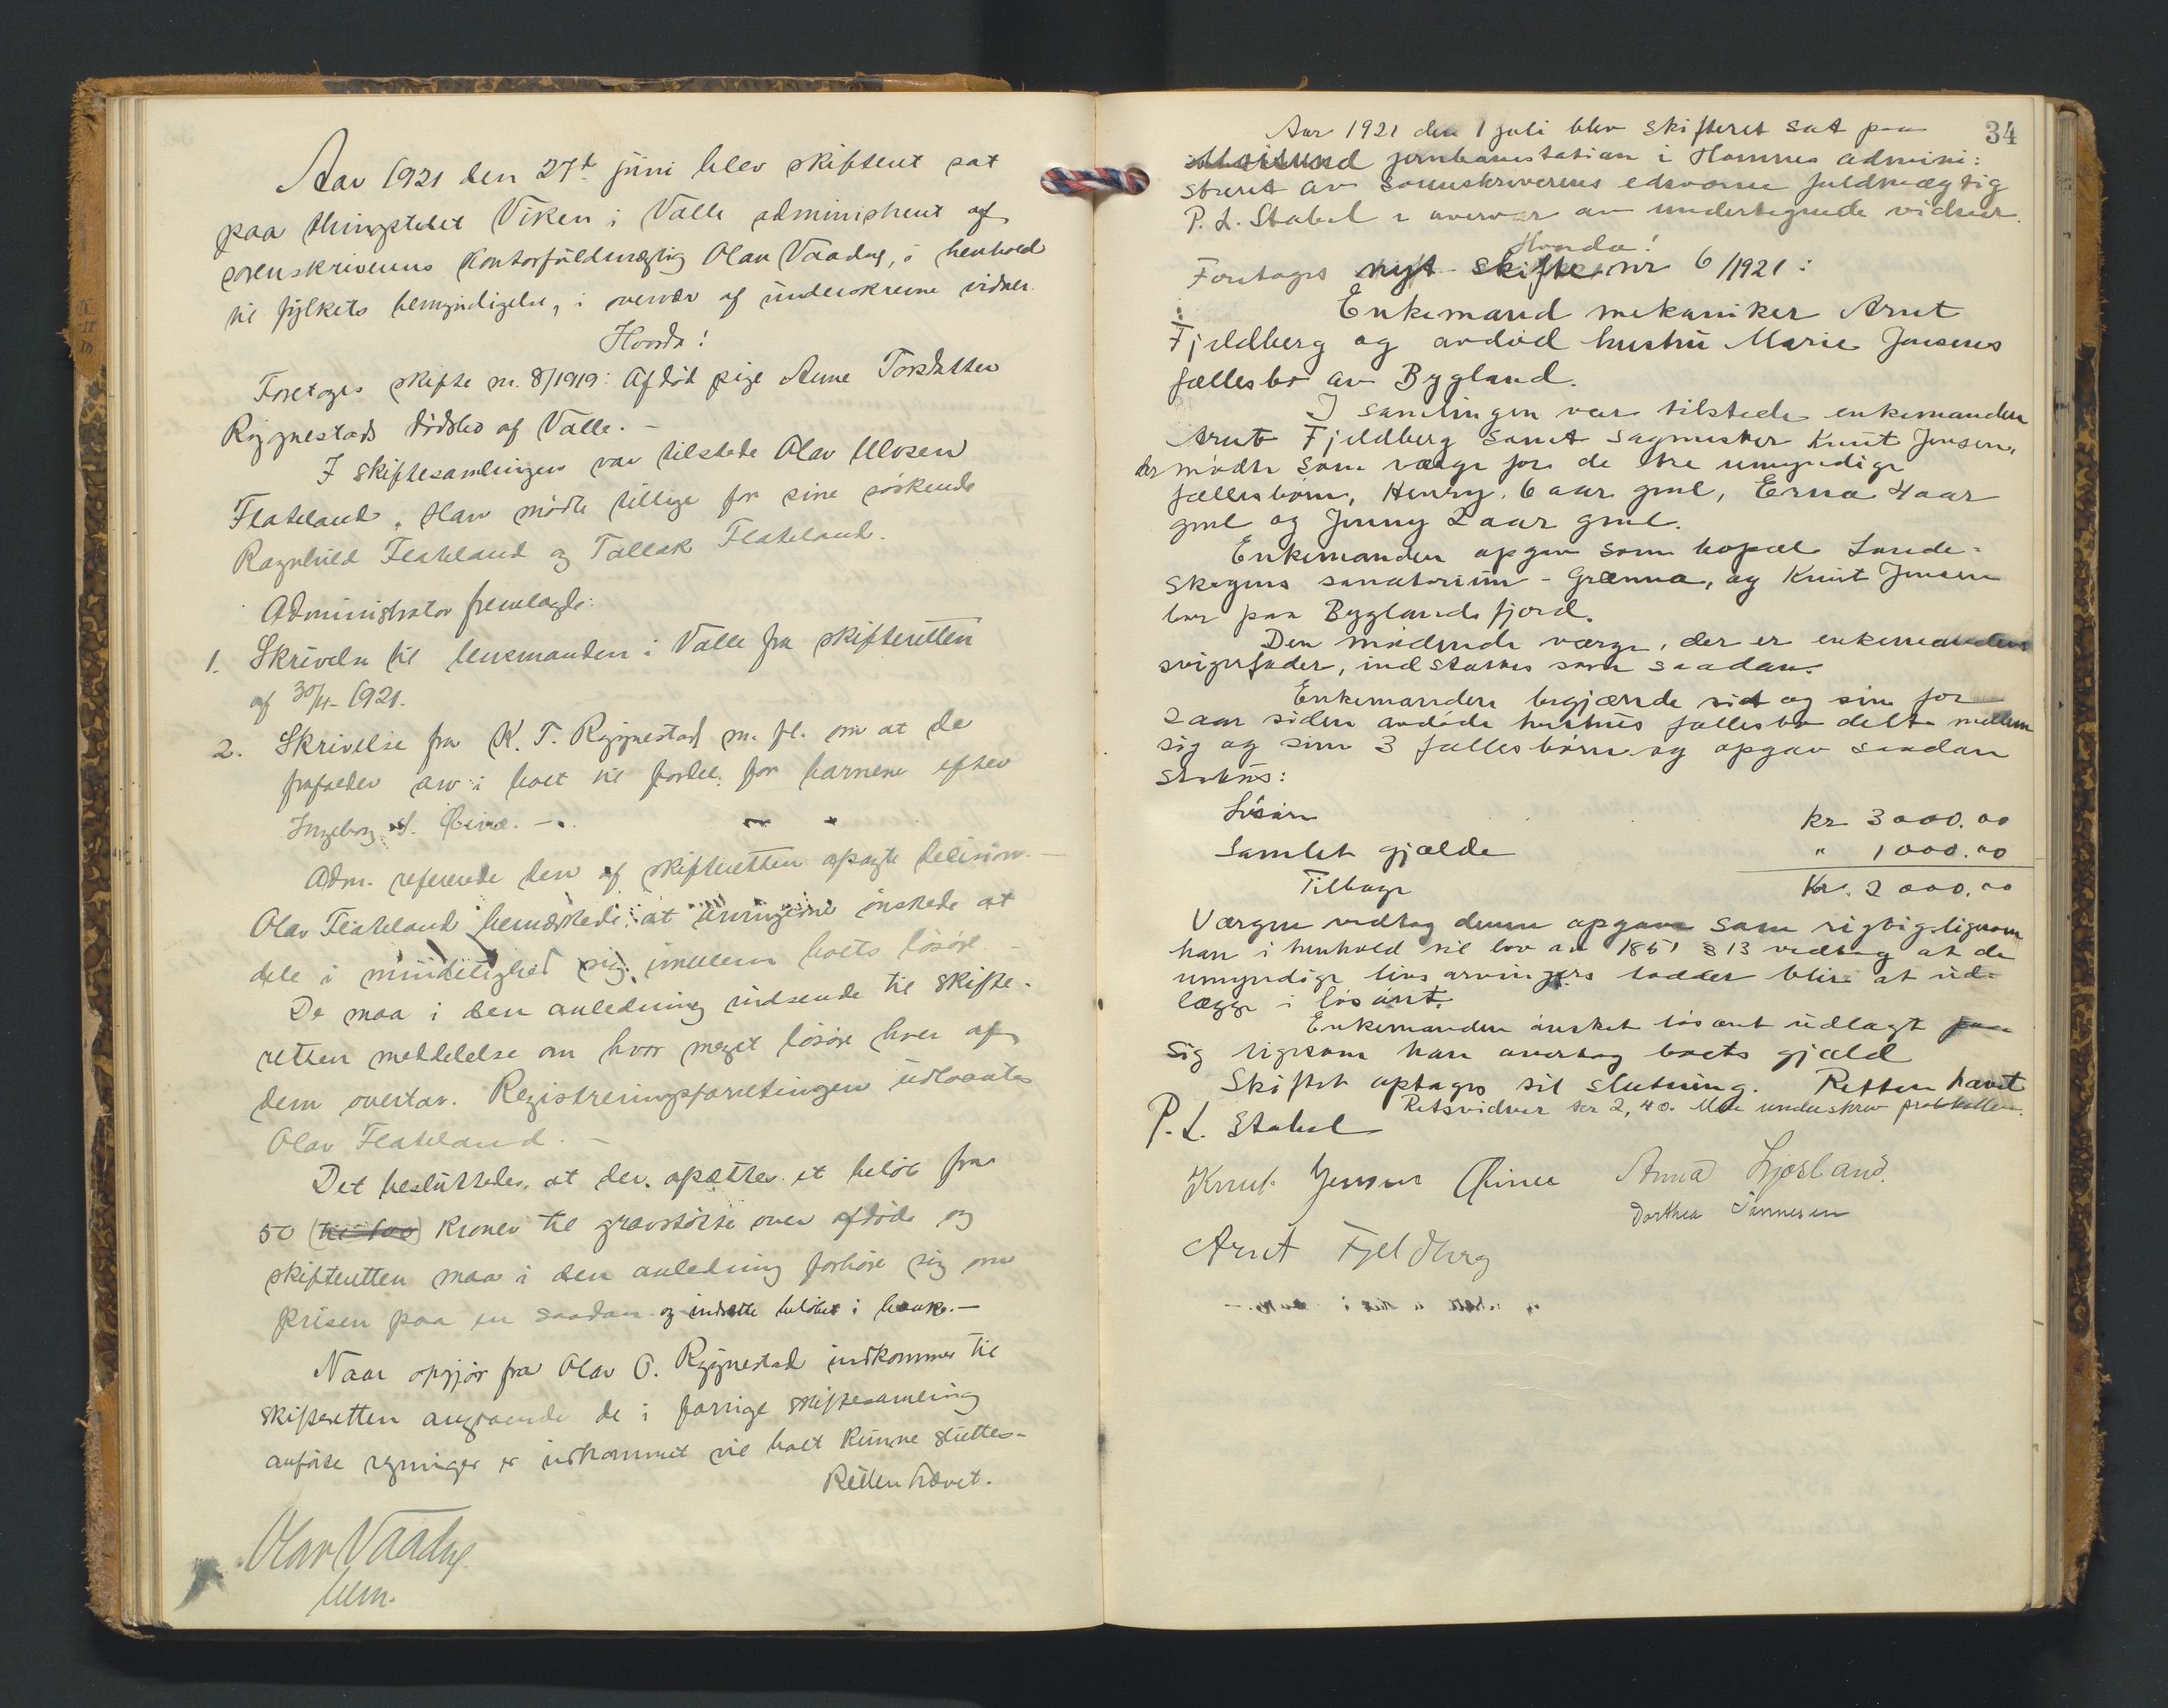 Aar 1921 den 27de juni blev skifteret sat
paa thingstedet Viken i Valle administreret af
sorenskriverens kontorfuldmægtig Olav Vaadny, i henhold
til fylkets bemyndigelse, i overvær af underskrevne vidner.
Hvorda!
Foretoges skifte nr. 8/1919: Afdød pige Anne Torsdatter
Rygnestads dødsbo af Valle. –
I skiftesamlingen var tilstede Olav Ulvsen
Flateland. Han mødte tillige for sine søskende
Ragnhild Flateland og Tallak Flateland.
Administrator fremlagde:
1. Skrivelse til lensmanden i Valle fra skifteretten
af 30/4– 1921.
2. Skrivelse fra K. T. Rygnestad m. fl. om at de
frafalder arv i boet til fordel for barnene efter
Ingeborg –
Adm. refererede den af skifteretten afsagte decision. –
Olav Flateland bemærkede, at arvingerne ønskede at
dele i mindelighed sig imellem boets løsøre. –
De maa i den anledning indsende til skifte-
retten meddelelse om hvor meget løsøre hver af
dem overtar. Registreringsforretningen utlaantes
Olav Flateland. –
Det besluttedes at der afsættes et beløb fra
50 (til 100) kroner til gravstøtte over afdøde og
skifteretten maa i den anledning forhøre sig om
prisen paa en saadan og indsætte beløbet i bank. –
Naar opgjør fra Olav O. Rygnestad indkommer til
skifteretten angaaende de i forrige skiftesamling
anførte regninger er indkommet vil boet kunne sluttes. –
Retten hævet.
Olav Vaadny
bem.
34
Aar 1921 den 1 juli blev skifteret sat paa
jernbanestation i Hornnes admini:
streret av sorenskriverens edsvorne fuldmægtig
P. L. Stabel i overvær av undertegnede vidner.
Hvorda!
Foretoges nyt skifte nr 6/1921:
Enkemand mekaniker Arnt
Fjeldberg og avdød hustru Marie Jensens
fællesbo av Bygland.
I samlingen var tilstede enkemanden
Arnt Fjeldberg samt sagmester Knut Jensen,
der mødte som værge for de tre umyndige
fællesbørn, Henry, 6 aar gml, Erna 4 aar
gml og Jenny 2 aar gml.
Enkemanden opgav som bopæl Lande-
skogens sanatorium – Grænna, og Knut Jensen
bor paa Byglandsfjord.
Den mødende værge, der er enkemandens
svigerfader, indstævnes som saadan.
Enkemanden begjærede sit og sin for
2 aar siden avdøde hustrus fællesbo delt mellem
sig og sine 3 fællesbørn og opgav saadan
status:
Løsøre kr 3000.00
Samlet gjæld " 1000.00
Tilbage Kr. 2000.00
Værgen vedtog denne opgave som rigtig ligesom
han i henhold til lov av 1851 § 13 vedtog at de
umyndige livsarvingers lodder blir at ud-
lægge i løsøret.
Enkemanden ønsket løsøret udlagt
sig ligesom han overtog boets gjæld
Skiftet optages til slutning. Retten hævet
Retsvidner ter 2,40. underskrev protokollen.
P. L. Stabel
Knut Jensen Anna Ljosland.
Dorthea Tønnesen
Arnt Fjeldberg